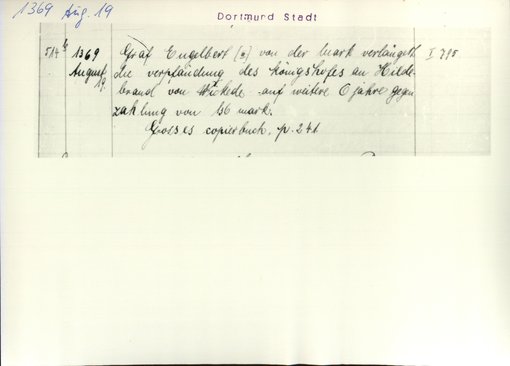 1369 Aug. 19
Dortmund Stadt
514 b 1369 Graf Engelbert [3] von der Mark verlängerth I 785
August die verpfändung des Königshofes an Hilde-
19. brand von Wickede auf weitere 6 jahre gegen
zahlung von 136 mark.
Grosses copierbuch, p. 241